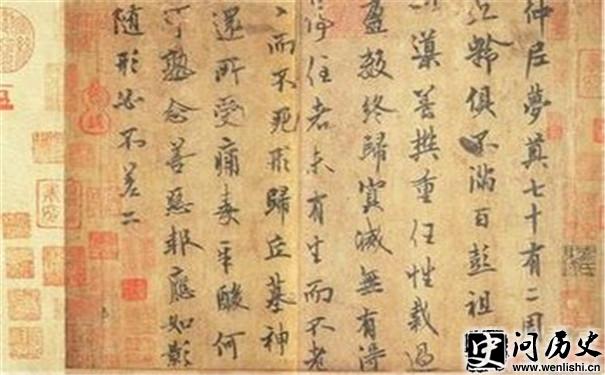 仲尼夢奠七十有二周
九齡俱不滿百彭祖
養樊重任性裁過
盈數終歸冥滅無有得
停住者未有生而不老
而不死形歸丘墓神
還所受痛毒辛酸何
可熟念善惡報應如影
隨形必不差二
问历史
www.wenlishi.cn